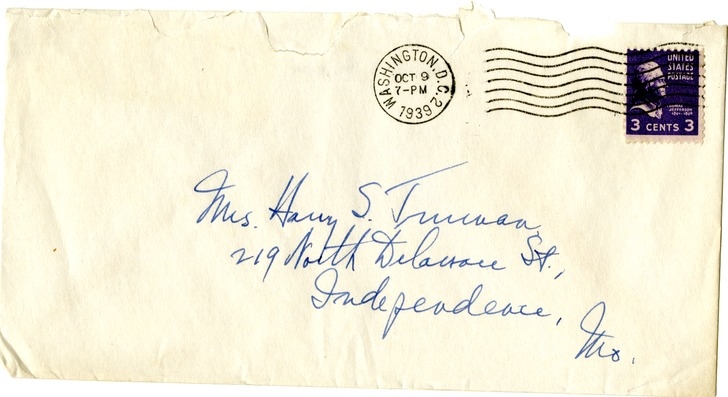 WASHINGTON, D.C. 2
OCT 9
7-PM
1939
UNITED
STATES
POSTAGE
THOMAS
JEFFERSON
3 CENTS 3
Mrs. Harry S. Truman,
219 North Delaware St.,
Independence,
Mo.